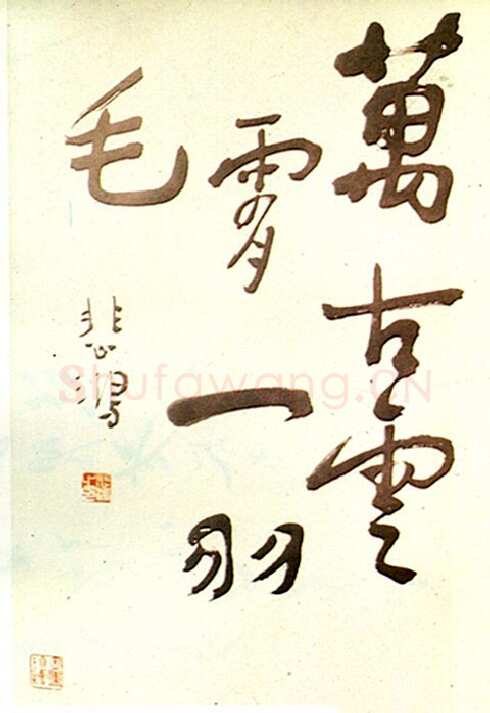 萬古雲
霄一羽
毛
悲鴻
Shufawang.CN